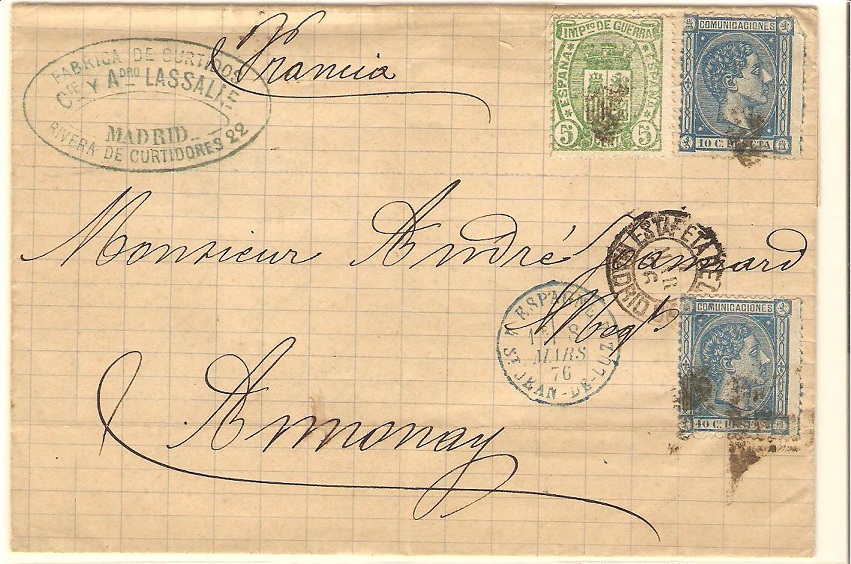 FABRICA DE CURTIDOS
Cie Y ADRO LASSALLE
MADRID
RIVERA DE CURTIDORES 22
Francia
IMPTO DE GUERRA
ESPAÑA
ESPAÑA
5 CENT 5
COMUNICACIONES
10 C. PESETA
Monsieur André
ESTAFETA
MADRID
ESPAGNE
MARS
76
ST JEAN-DE-LUZ
Megis
COMUNICACIONES
40 C. PESETA
Annonay